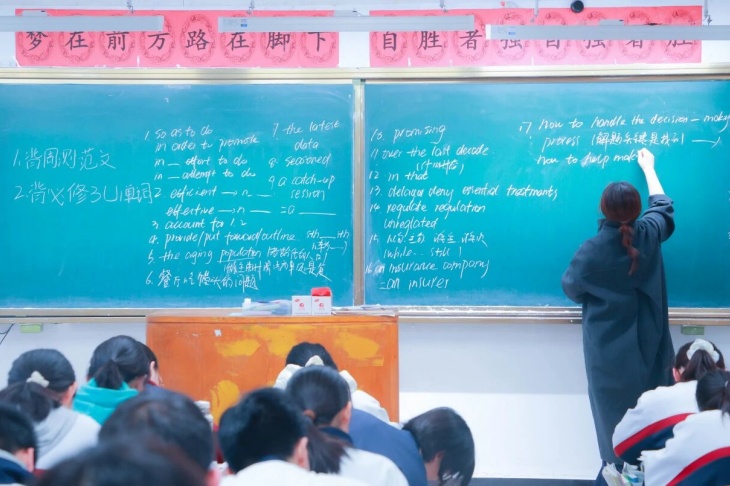 梦在前方路在脚下
自胜者强自强者胜
1.背周测范文
2.背必修3U1单词
1. so as to do
in order to promote
in _ effort to do
in _ attempt to do
2. efficient → n __
effective → n __ = 0 __
3. account for 1, 2
4. provide/put forward/outline sth
5. the aging population
6.
7 the latest
data
8. seasoned
9 a catch-up
session
10. promising
11 over the last decade
12 in that
13. delay/deny essential treatments
14. regulate regulation
unregulated
15
while still
16 an insurance company
= an insurer
17 how to handle the decision-making
process
how to help make